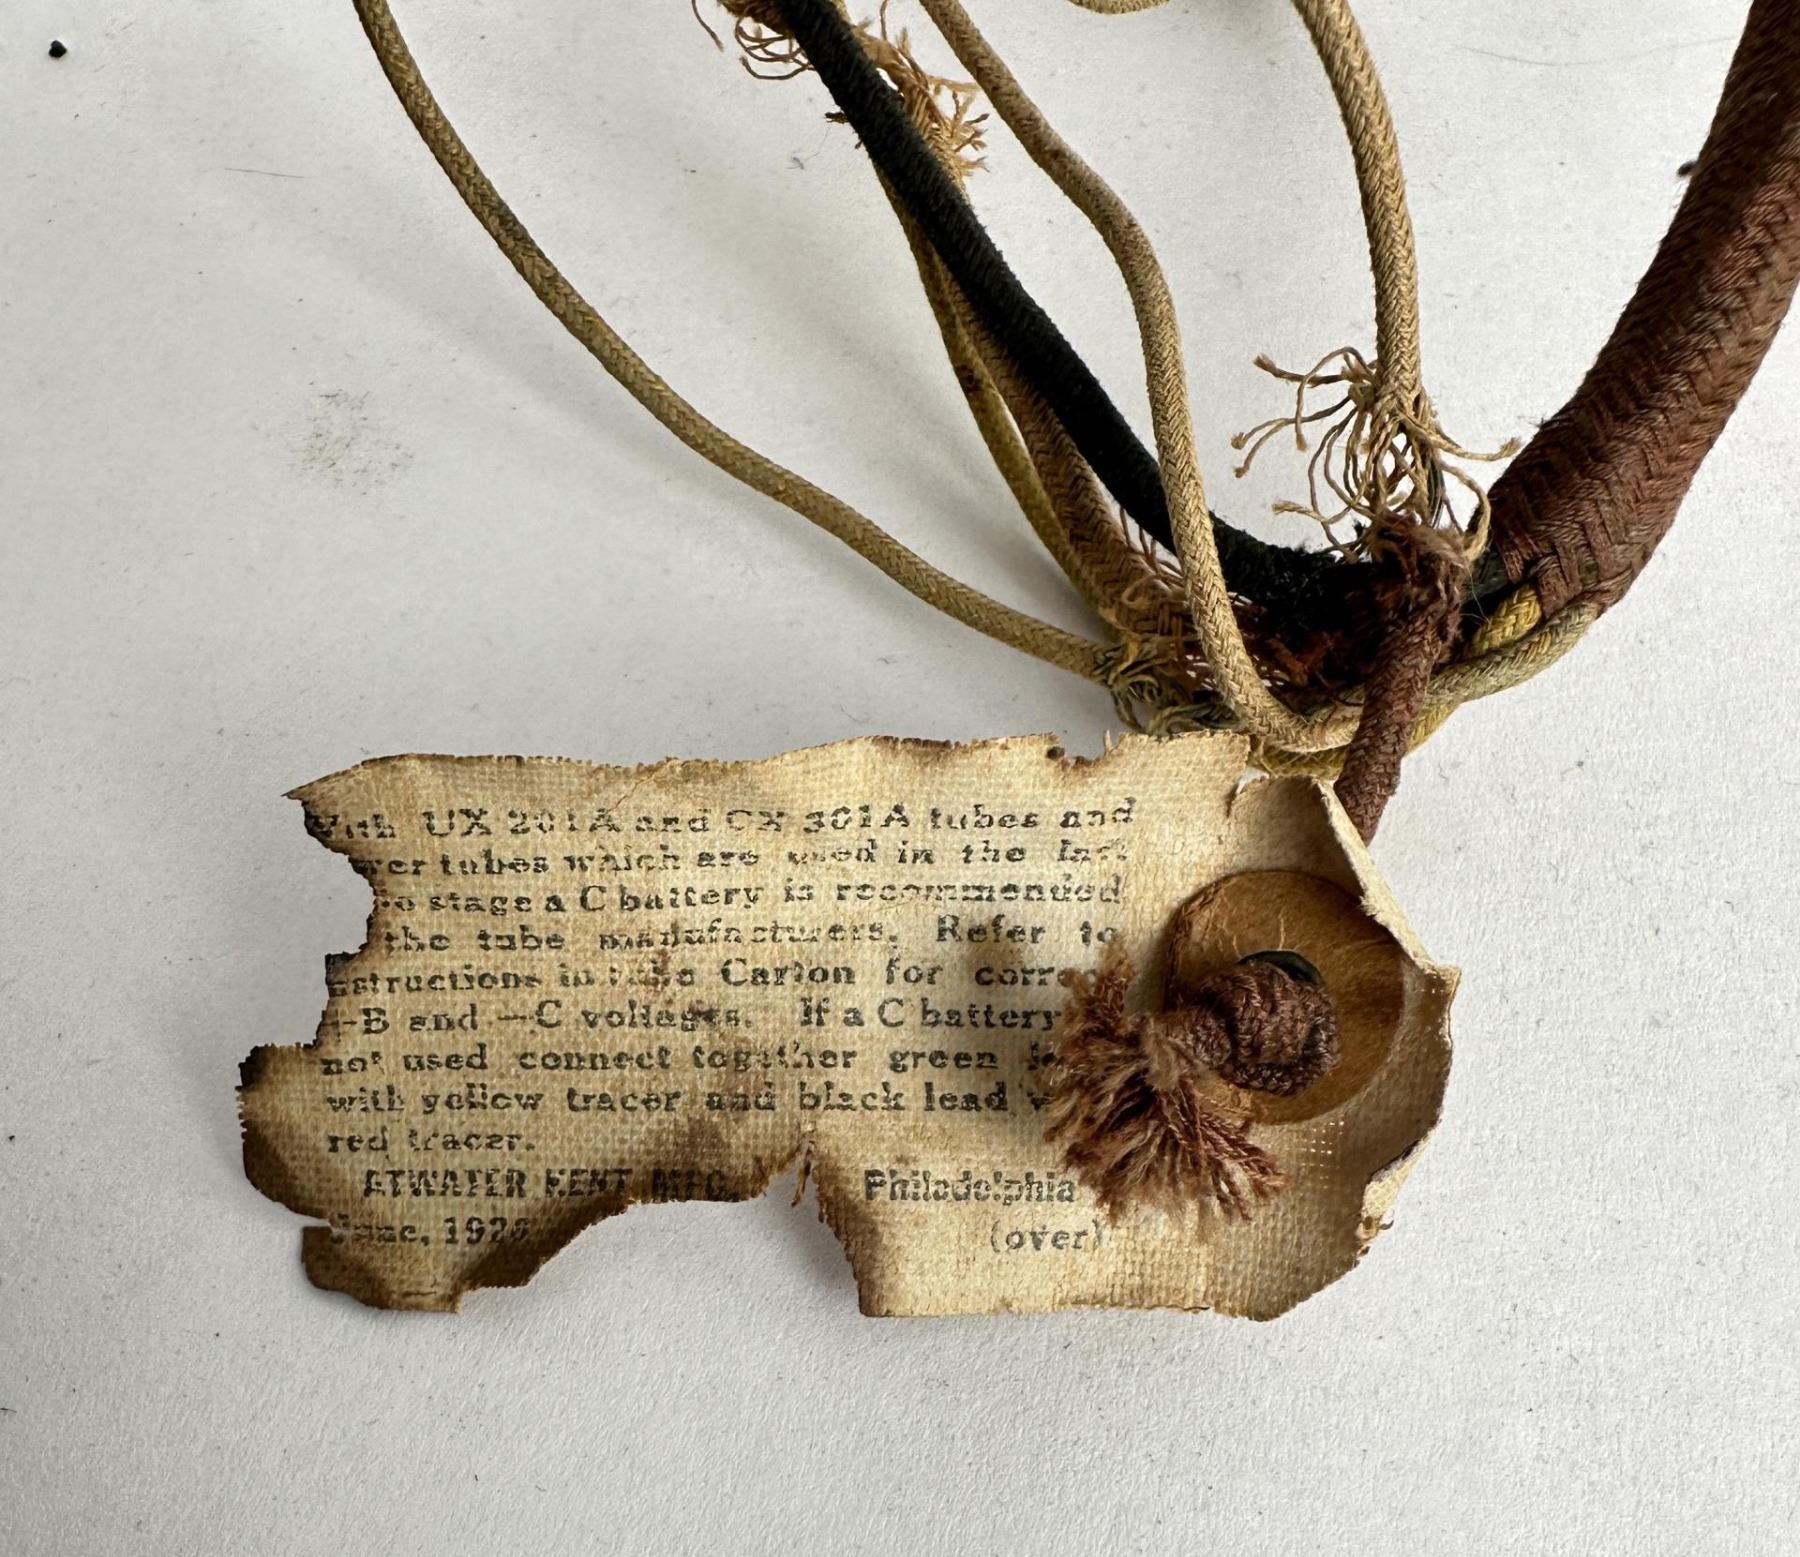 With UX 201A and CX 301A tubes and
wer tubes which are used in the last
io stage a C battery is recommended
the tube manufacturers. Refer to
nstructions in tube Carton for corre
+B and —C voltages. If a C battery
not used connect together green le
with yellow tracer and black lead w
red tracer.
ATWATER KENT MFG. Philadelphia
June, 1926
(over)